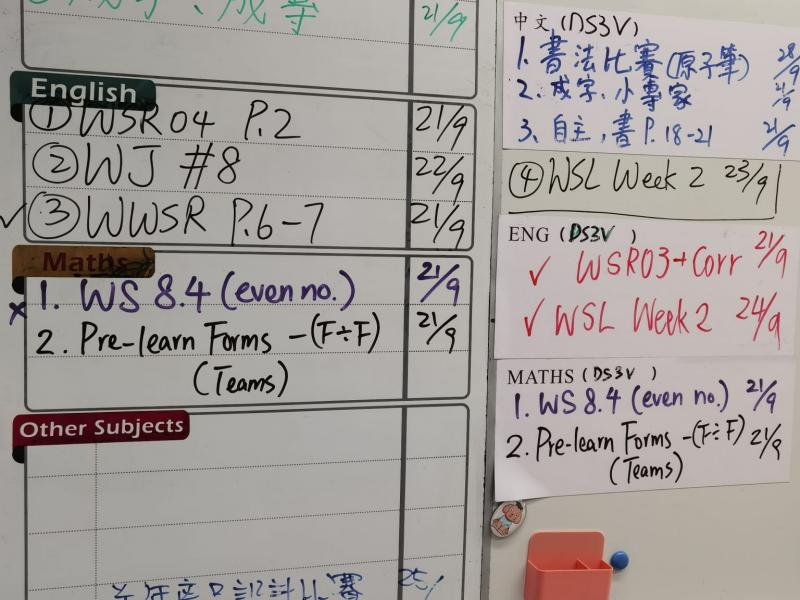 21/9
English
① WSR04 P.2 21/9
② WJ #8 22/9
✓ ③ WWSR P.6-7 21/9
Maths
x 1. WS 8.4 (even no.) 21/9
2. Pre-learn Forms -(F÷F) 21/9
(Teams)
Other Subjects
25/
中文 (DS3V)
1. 書法比賽(原子筆) 28/9
2. 成字、小專家 21/9
3、自主,書P.18-21 21/9
④ WSL Week 2 23/9
ENG (DS3V)
✓ WSR03+Corr 21/9
✓ WSL Week 2 24/9
MATHS (DS3V)
1. WS 8.4 (even no.) 21/9
2. Pre-learn Forms -(F÷F) 21/9
(Teams)